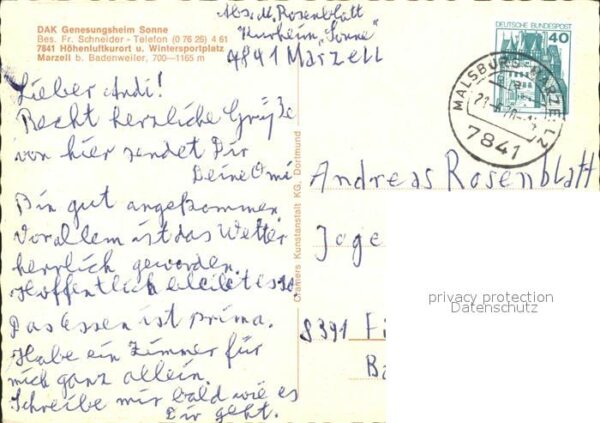 DAK Genesungsheim Sonne
Bes. Fr. Schneider - Telefon (0 76 26) 4 61
7841 Höhenluftkurort u. Wintersportplatz
Marzell b. Badenweiler, 700—1165 m
Abs. M. Rosenblatt
Kurheim „Sonne"
7841 Marzell
DEUTSCHE BUNDESPOST
40
MALSBURG-MARZELL 2
7841
Lieber Andi!
Recht herzliche Grüße
von hier sendet Dir
Deine Omi
Bin gut angekommen
Vorallem ist das Wetter
herrlich geworden.
Hoffentlich bleibt es so
Das Essen ist prima.
Habe ein Zimmer für
mich ganz allein.
Schreibe mir bald wie es
Dir geht.
Cramers Kunstanstalt KG, Dortmund
Andreas Rosenblatt
8391
privacy protection
Datenschutz